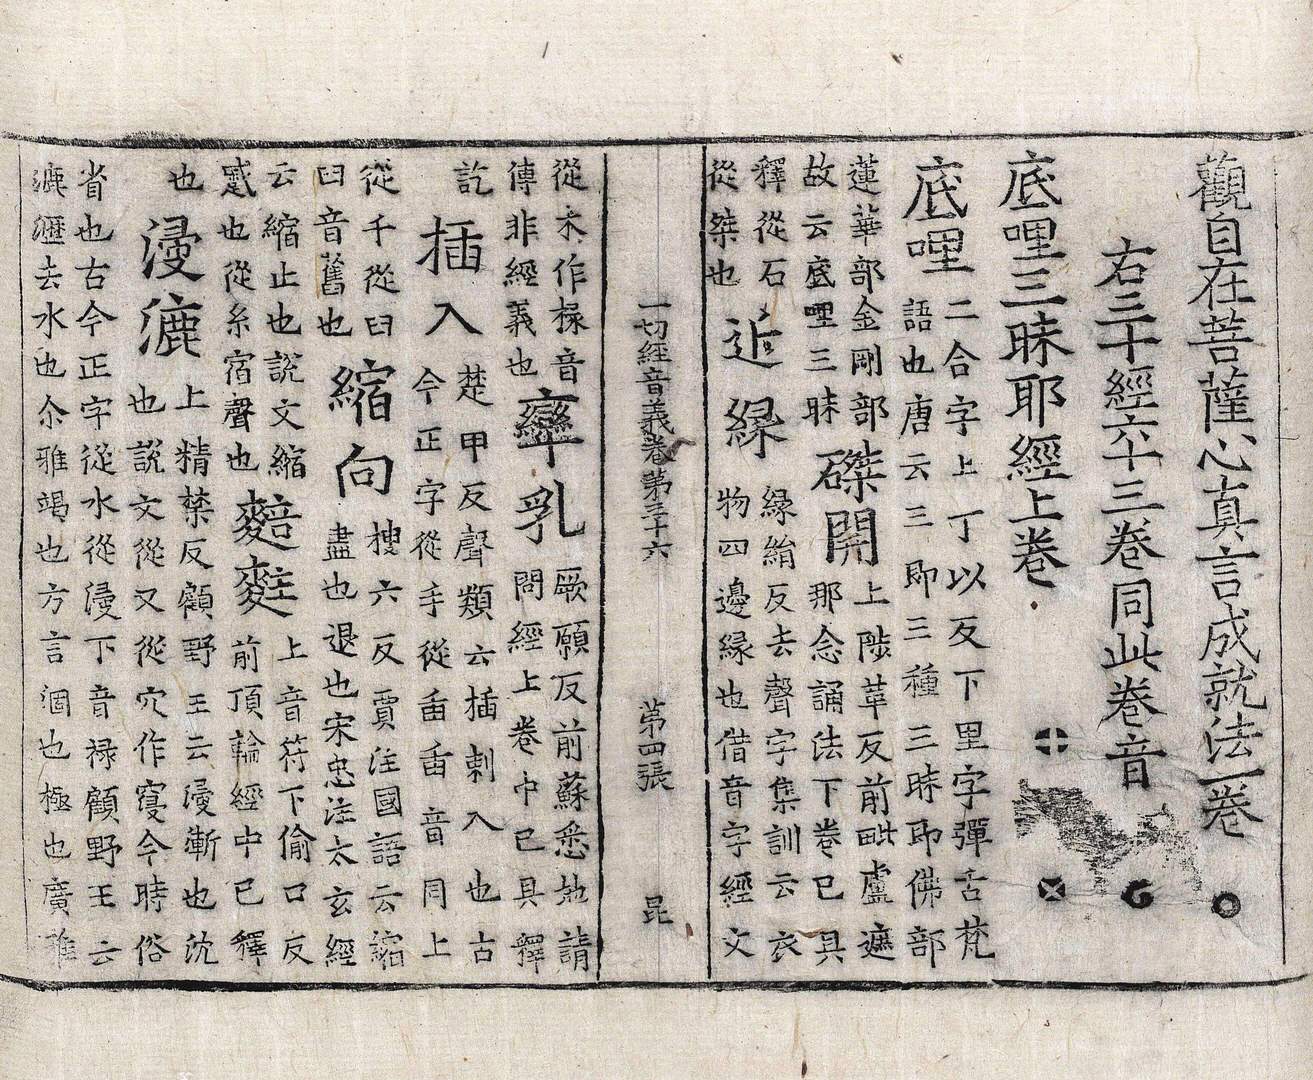 觀自在菩薩心真言成就法一卷
右三十經六十三卷同此卷音
底哩三昧耶經上卷
底哩二合字上丁以反下里字彈舌梵
語也唐云三即三種三昧耶佛部
蓮華部金剛部磔開上陟革反前毗盧遮
故云底哩三昧那念誦法下卷已具
釋從石近緣緣絹反去聲字集訓云衣
從桀也物四邊緣也借音字經文
一切經音義卷第三十六 第四張 昆
從木作椽音㝈乳厥願反前蘇悉地請
傳非經義也問經上卷中已具釋
訖插入楚甲反聲類云插刺入也古
今正字從手從臿臿音同上
從千從臼縮向搜六反賈注國語云縮
臼音舊也盡也退也宋忠注太玄經
云縮止也說文縮䴺䴷上音符下偷口反
蹙也從糸宿聲也前頂輪經中已釋
也寖漉上精禁反顧野王云寖漸也沈
也說文從又從穴作寑今時俗
省也古今正字從水從寖下音祿顧野王云
漉瀝去水也尒雅竭也方言涸也極也廣雅